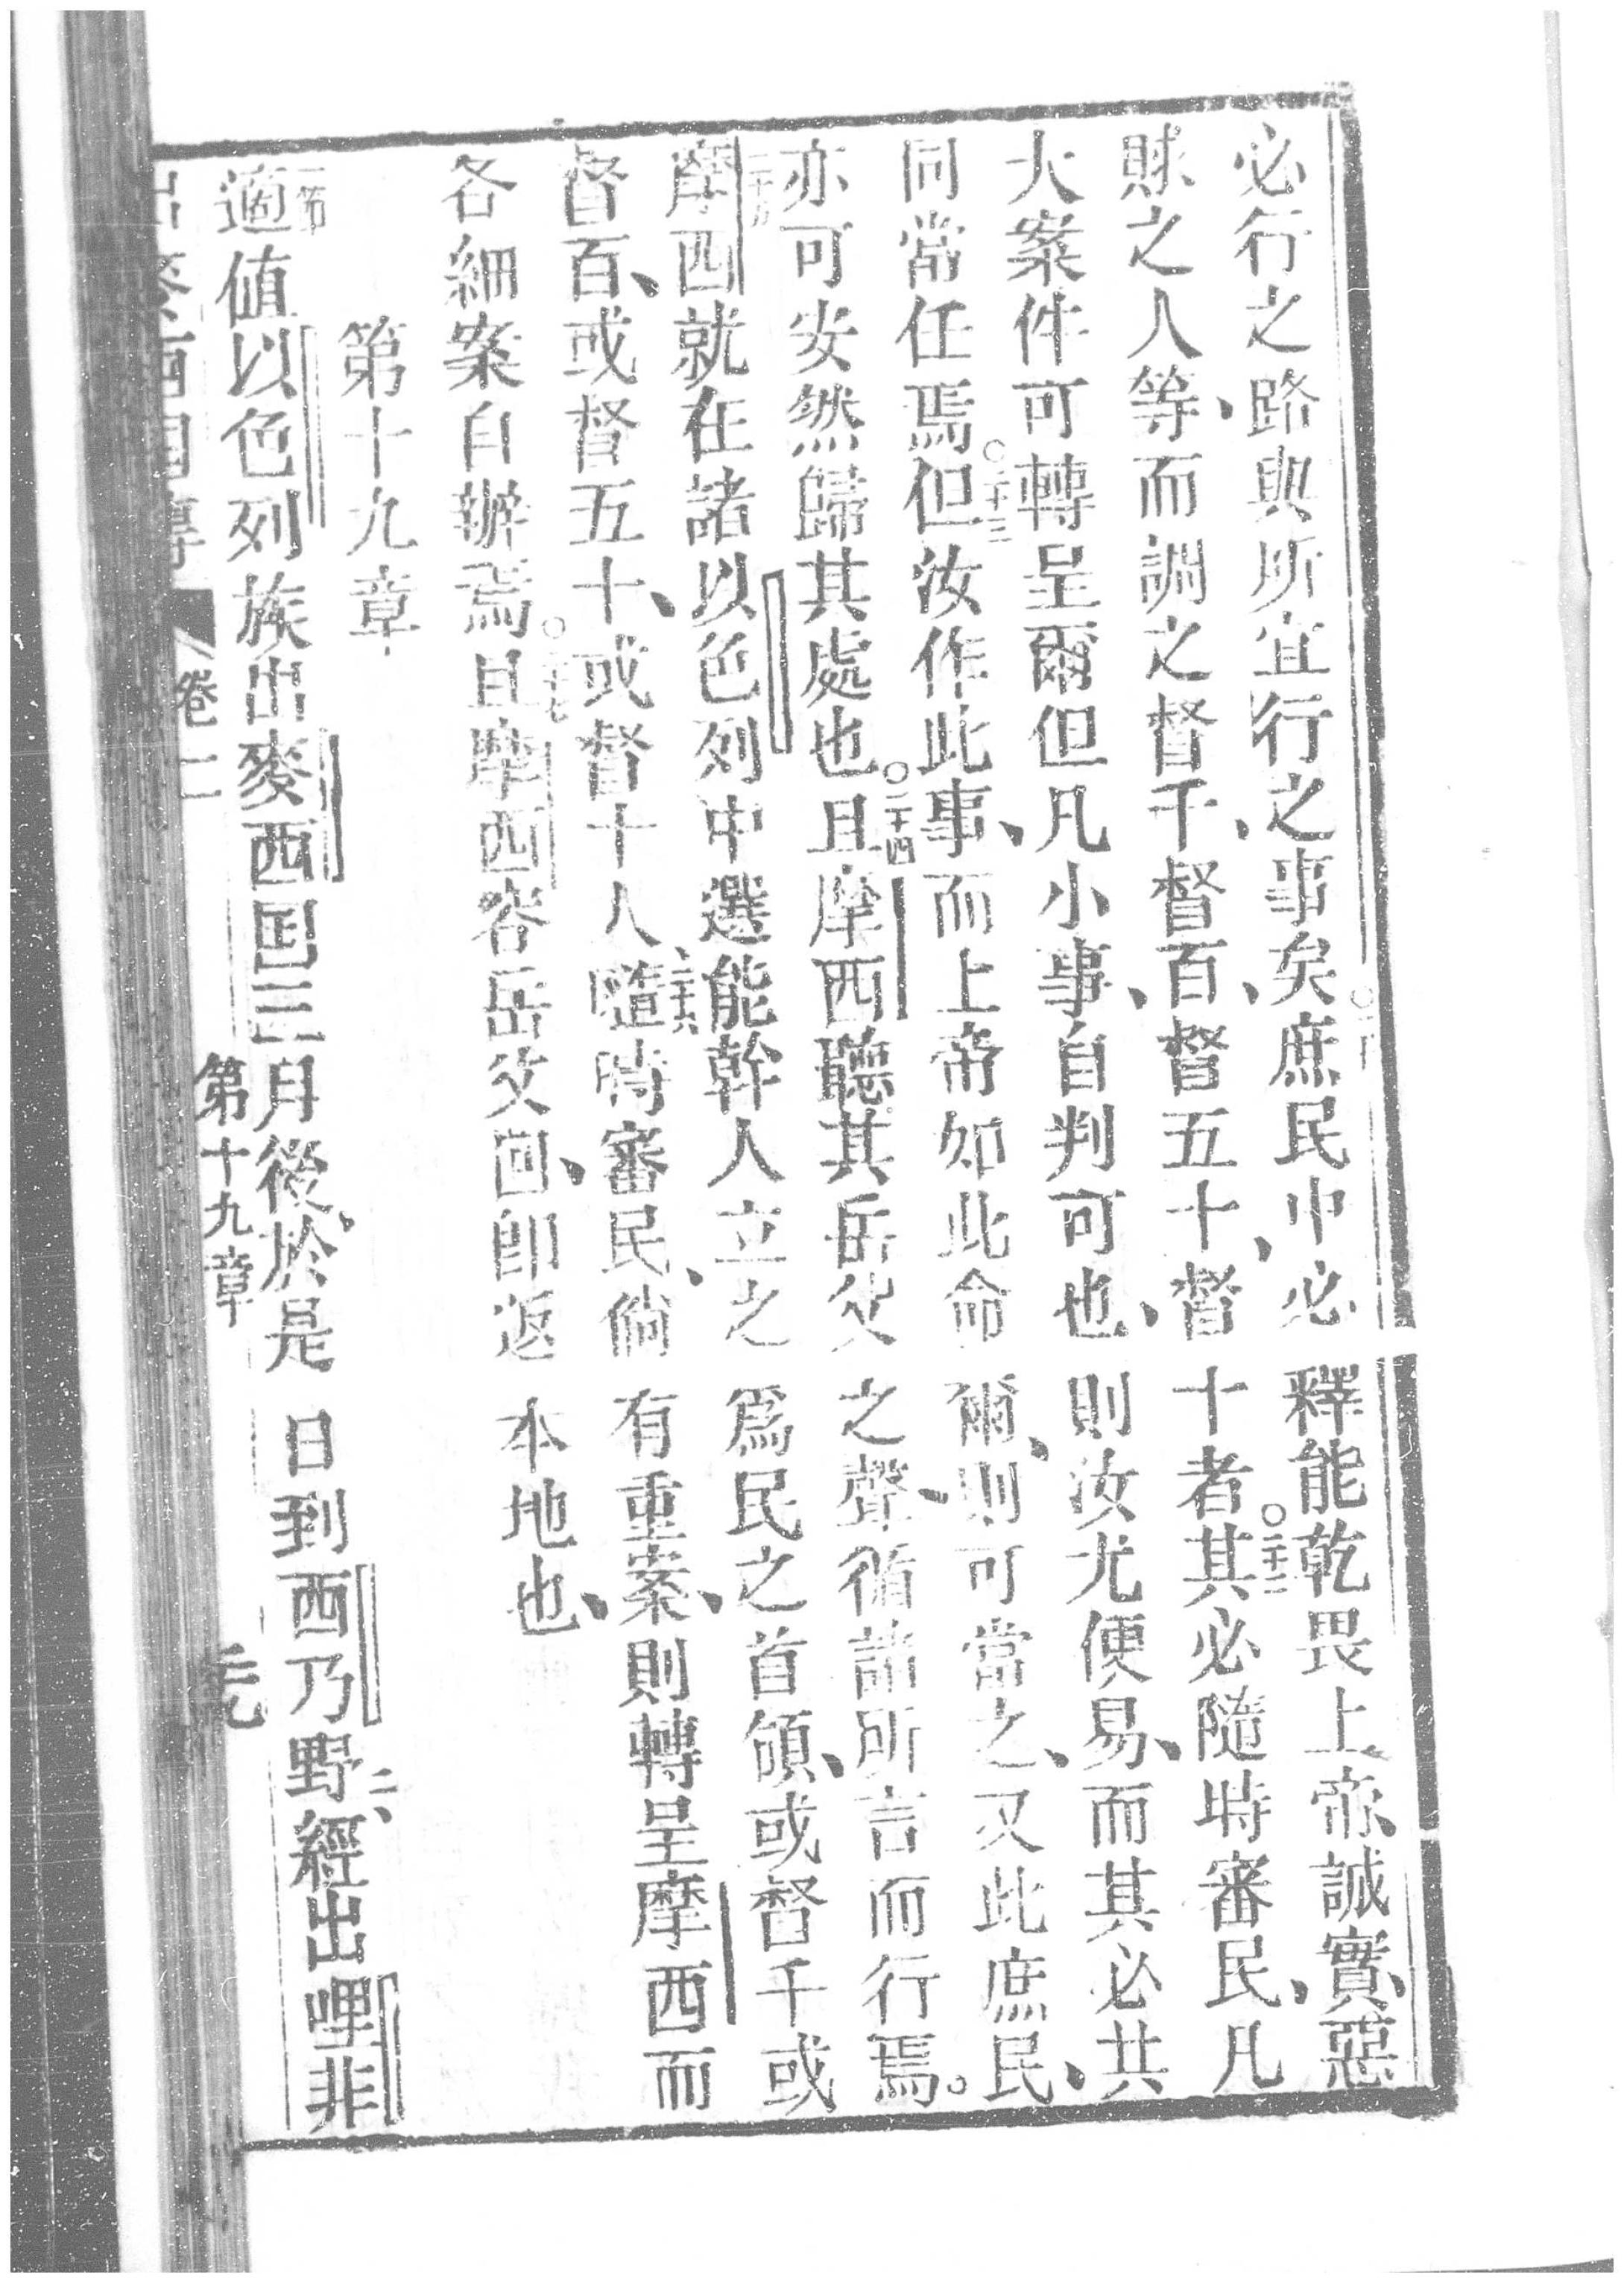 必行之路與所宜行之事矣○二十一庶民中必釋能乾畏上帝、誠實、惡
賕之人等、而謂之督千、督百、督五十、督十者○二十二其必隨時審民、凡
大案件可轉呈爾但凡小事、自判可也、則汝尤便易、而其必共
同當任焉○二十三但汝作此事、而上帝如此命爾、則可當之、又此庶民、
亦可安然歸其處也○二十四且摩西聽其岳父之聲、循諸所言而行焉。
二十五摩西就在諸以色列中選能幹人立之為民之首領、或督千或
督百、或督五十、或督十人、二十六隨時審民、倘有重案、則轉呈摩西而
各細案自辦焉○二十七且摩西容岳父回、即返本地也、
第十九章
一節適值以色列族出麥西国三月後、於是日到西乃野、二經出哩非
卷二 第十九章